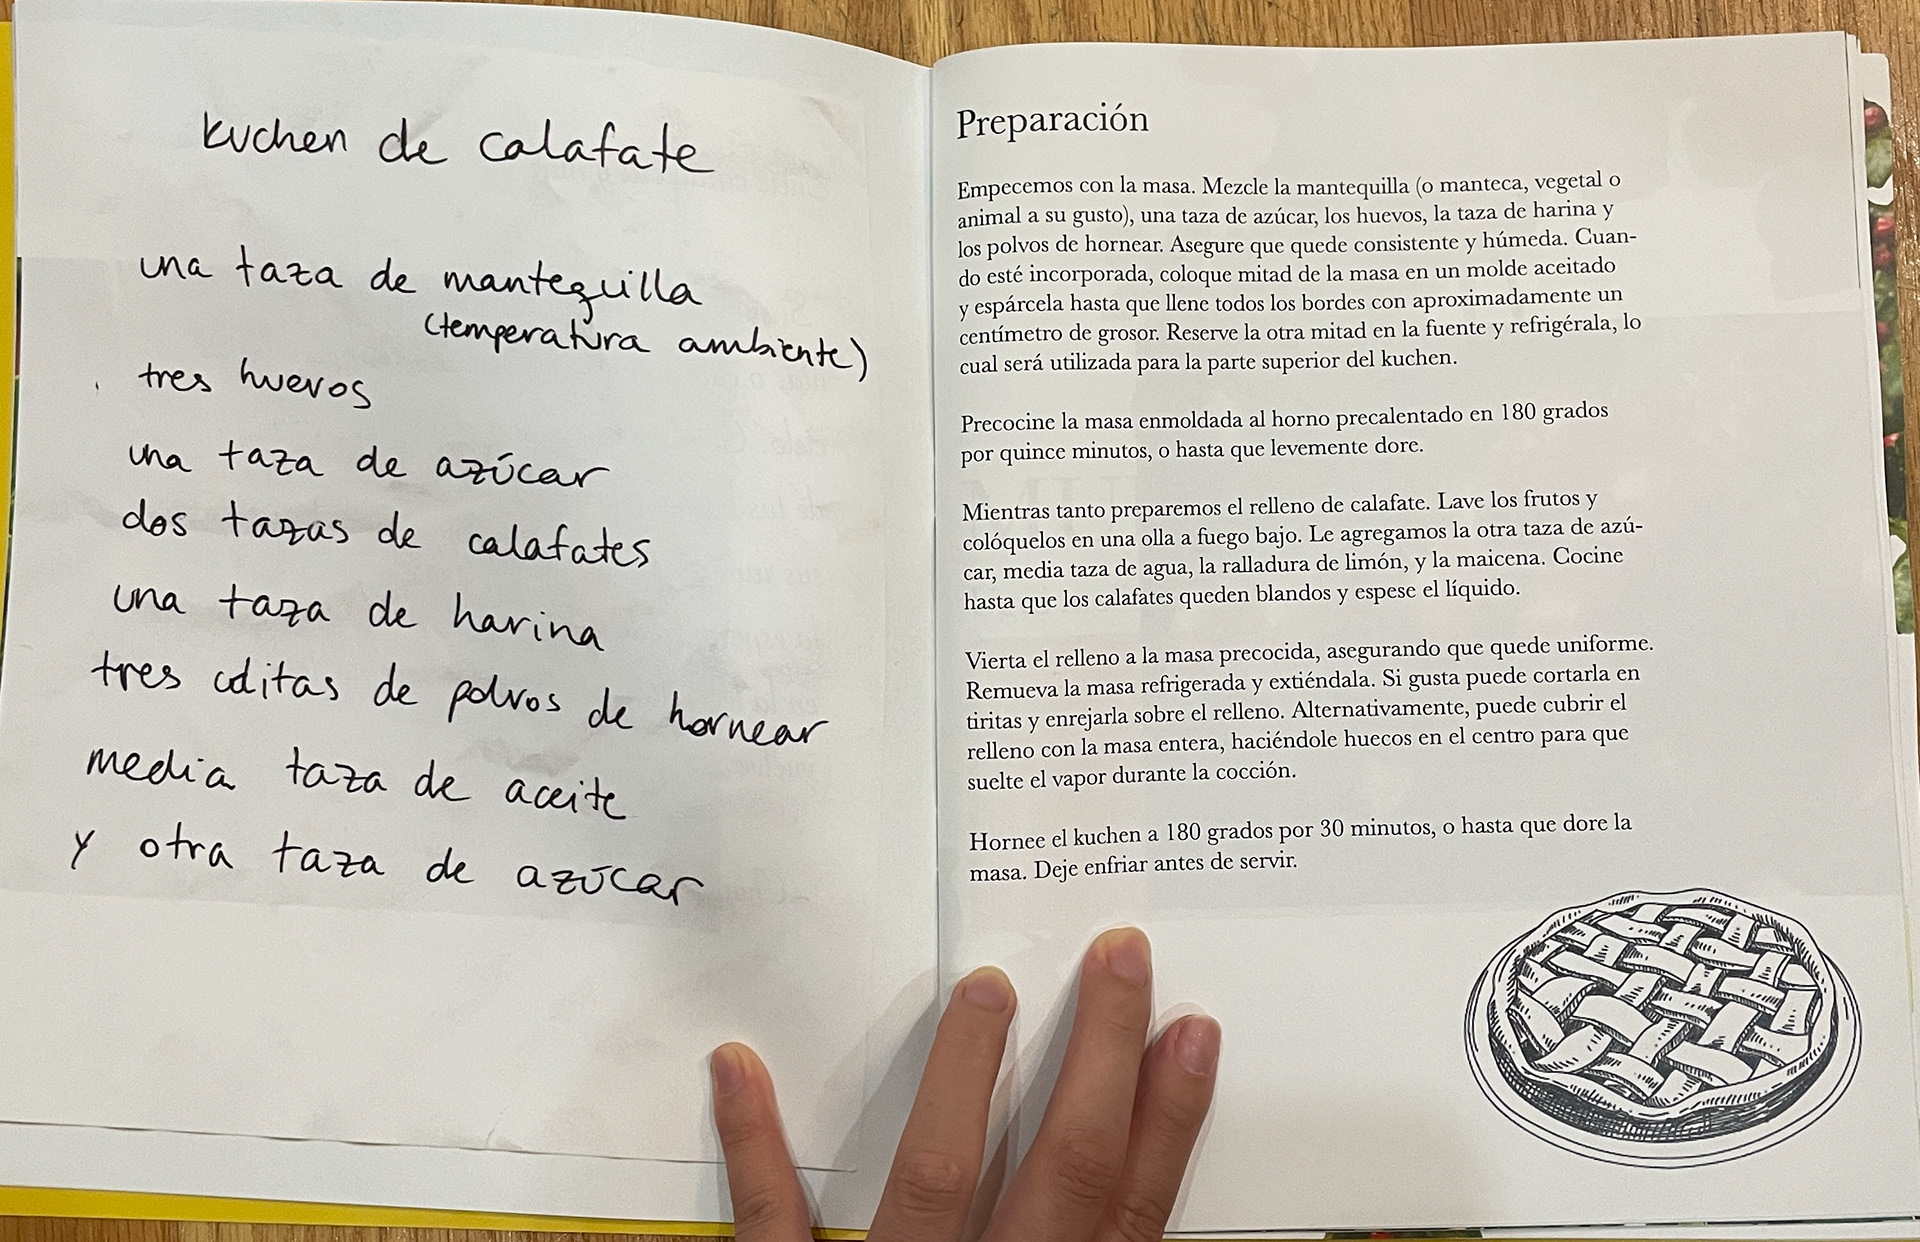 kuchen de calafate
una taza de mantequilla
(temperatura ambiente)
tres huevos
una taza de azúcar
dos tazas de calafates
una taza de harina
tres cditas de polvos de hornear
media taza de aceite
y otra taza de azúcar
Preparación
Empecemos con la masa. Mezcle la mantequilla (o manteca, vegetal o
animal a su gusto), una taza de azúcar, los huevos, la taza de harina y
los polvos de hornear. Asegure que quede consistente y húmeda. Cuan-
do esté incorporada, coloque mitad de la masa en un molde aceitado
y espárcela hasta que llene todos los bordes con aproximadamente un
centímetro de grosor. Reserve la otra mitad en la fuente y refrigérala, lo
cual será utilizada para la parte superior del kuchen.
Precocine la masa enmoldada al horno precalentado en 180 grados
por quince minutos, o hasta que levemente dore.
Mientras tanto preparemos el relleno de calafate. Lave los frutos y
colóquelos en una olla a fuego bajo. Le agregamos la otra taza de azú-
car, media taza de agua, la ralladura de limón, y la maicena. Cocine
hasta que los calafates queden blandos y espese el líquido.
Vierta el relleno a la masa precocida, asegurando que quede uniforme.
Remueva la masa refrigerada y extiéndala. Si gusta puede cortarla en
tiritas y enrejarla sobre el relleno. Alternativamente, puede cubrir el
relleno con la masa entera, haciéndole huecos en el centro para que
suelte el vapor durante la cocción.
Hornee el kuchen a 180 grados por 30 minutos, o hasta que dore la
masa. Deje enfriar antes de servir.